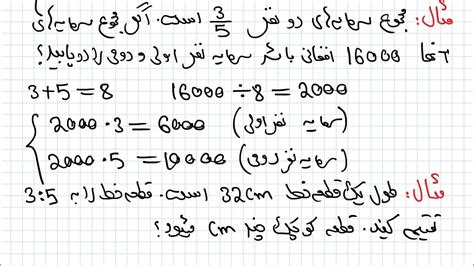 مثال: مجموع سرمایه‌ای دو نفر 3/5 است. اگر مجموع سرمایه‌ای
آنها 16000 افغانی باشد سرمایه نفر اولی و دومی را دریابید؟
3+5=8 16000÷8=2000
2000·3=6000 (سرمایه نفر اولی)
2000·5=10000 (سرمایه نفر دومی)
مثال: طول یک قطعه خط 32cm است. قطعه خط را به 3:5
تقسیم کنید. قطعه کوچک چند cm میشود؟